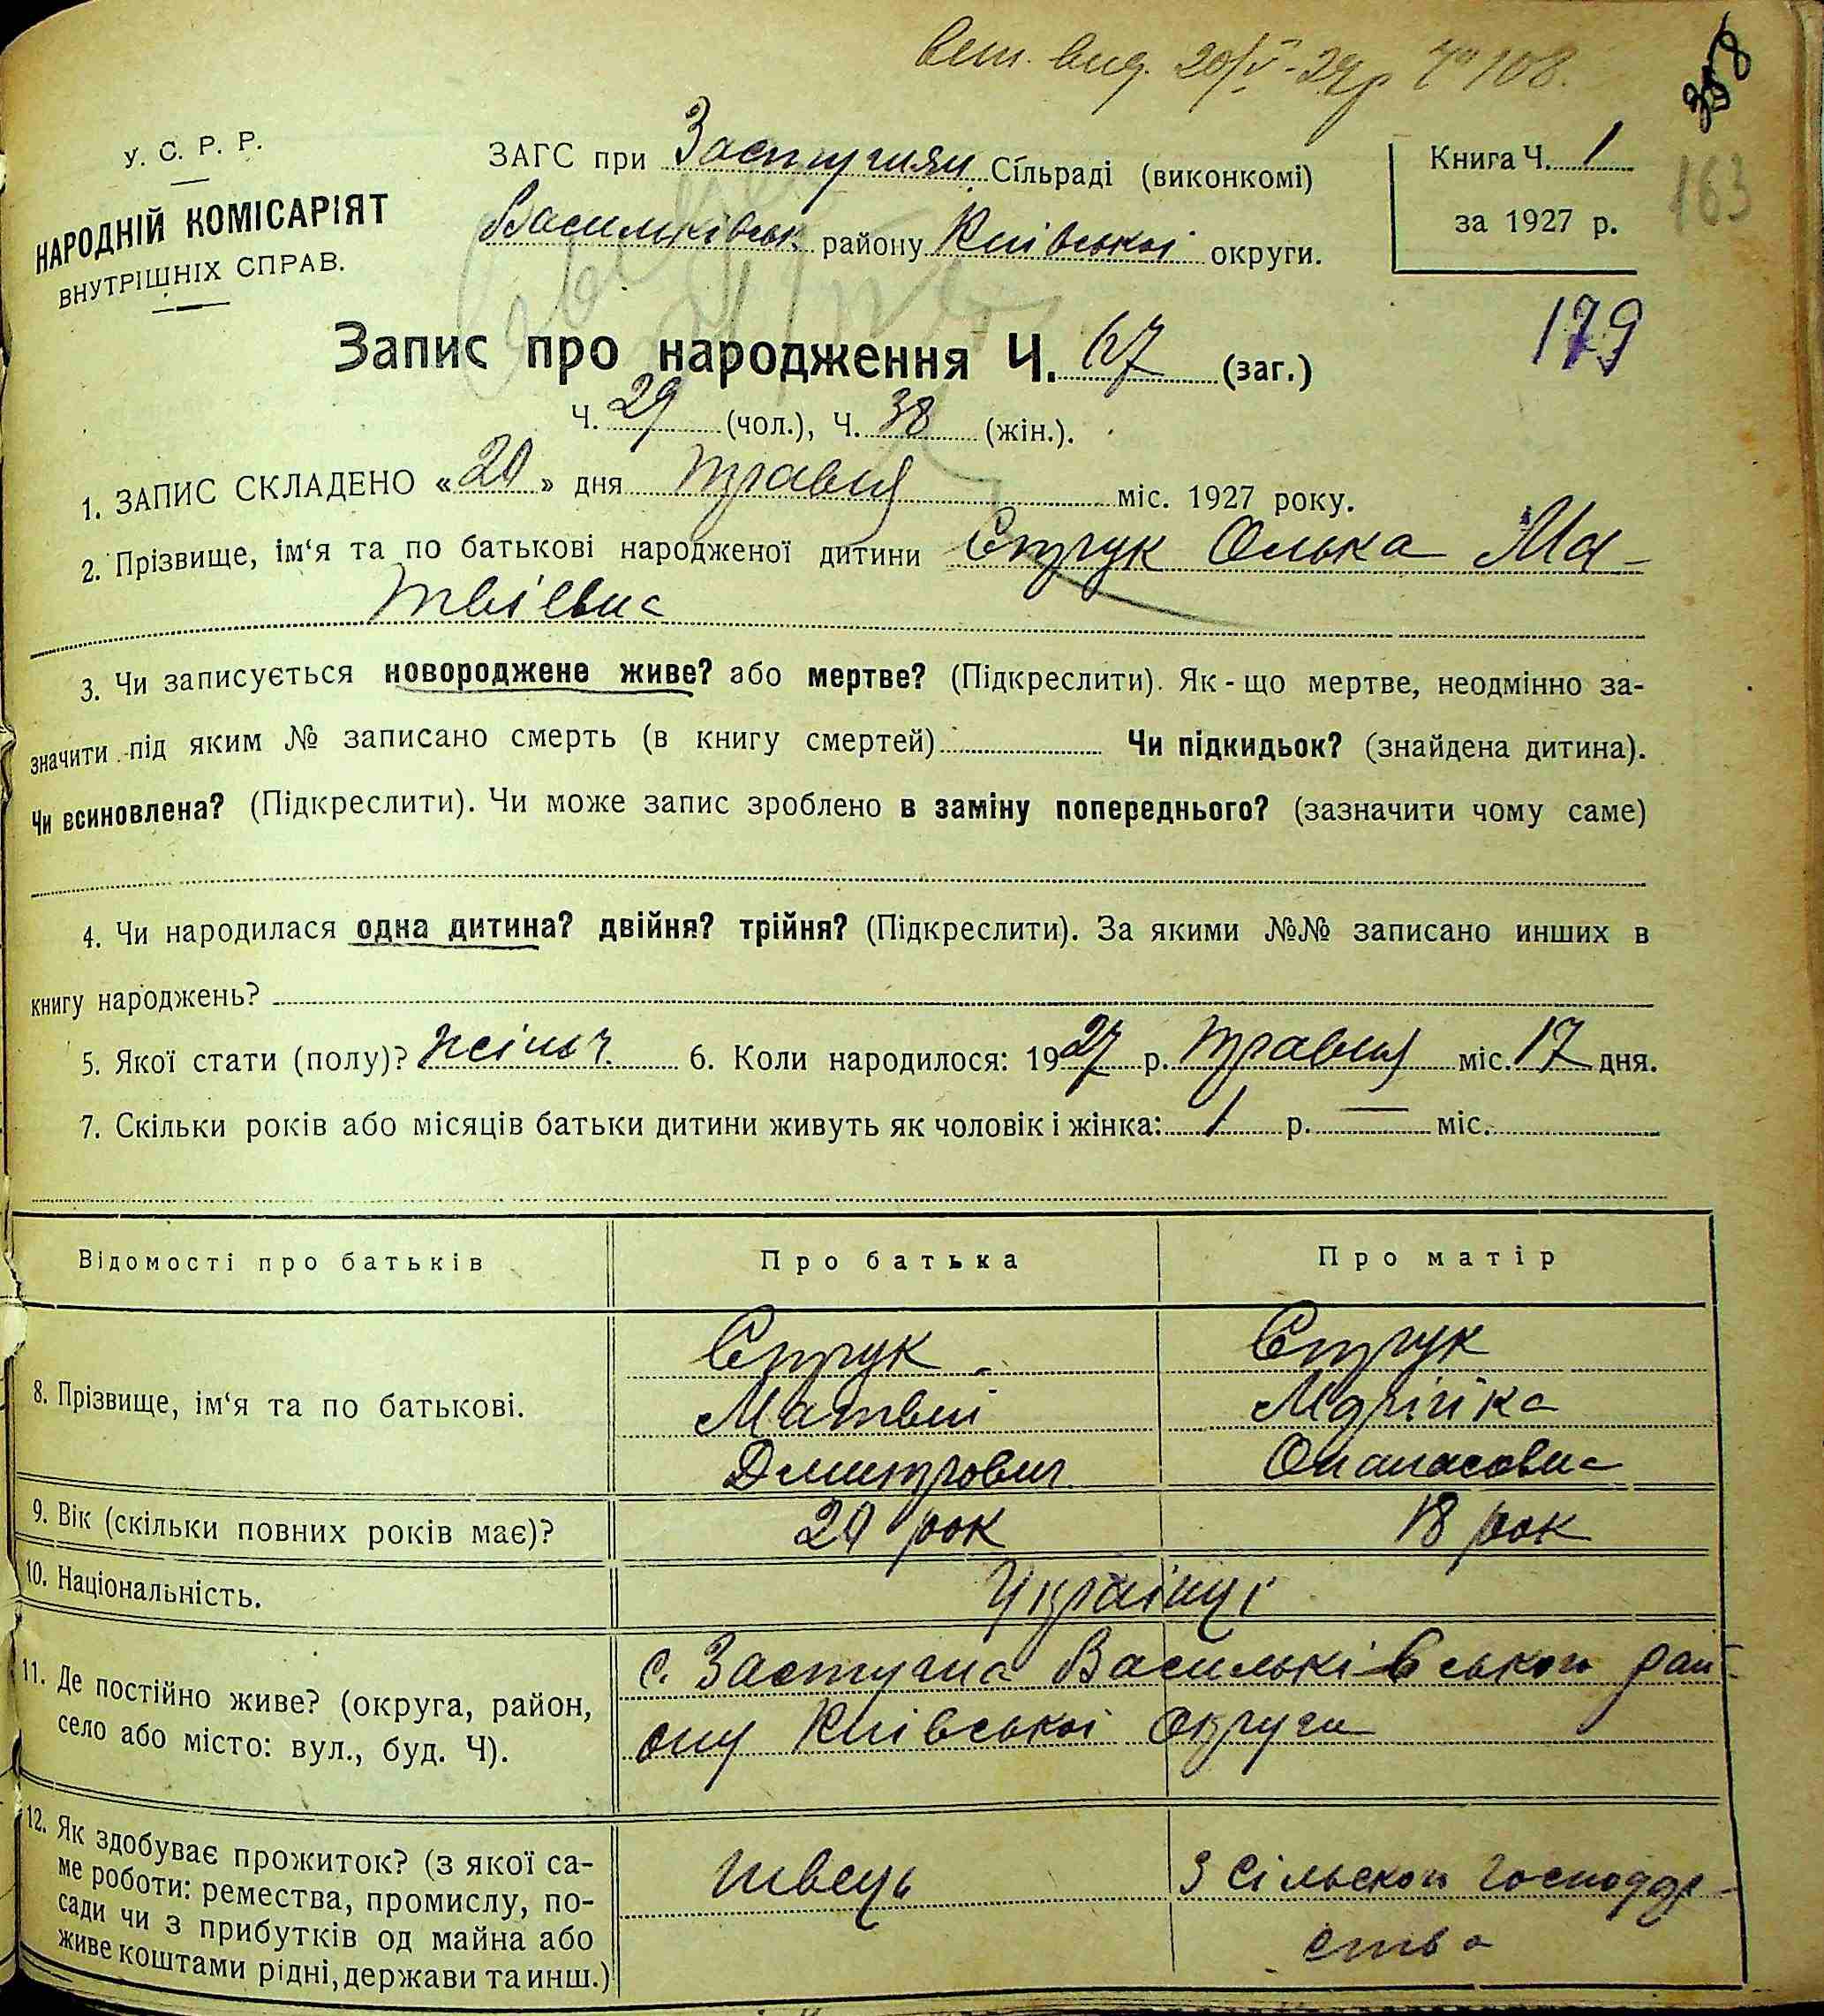 вип. вид. 20/V-29р Ч 108.
358
У. С. Р. Р.
НАРОДНІЙ КОМІСАРІЯТ
ВНУТРІШНІХ СПРАВ.
ЗАГС при Застугнян. Сільраді (виконкомі)
Васильківськ. району Київської округи.
Книга Ч. 1
за 1927 р.
163
179
Запис про народження Ч. 67 (заг.)
Ч. 29 (чол.), Ч. 38 (жін.).
1. ЗАПИС СКЛАДЕНО «20» дня травня міс. 1927 року.
2. Прізвище, ім‘я та по батькові народженої дитини Струк Олька Ма-
твіевна
3. Чи записується новороджене живе? або мертве? (Підкреслити). Як-що мертве, неодмінно за-
значити під яким № записано смерть (в книгу смертей) Чи підкидьок? (знайдена дитина).
Чи всиновлена? (Підкреслити). Чи може запис зроблено в заміну попереднього? (зазначити чому саме)
4. Чи народилася одна дитина? двійня? трійня? (Підкреслити). За якими №№ записано инших в
книгу народжень?
5. Якої стати (полу)? жіноч. 6. Коли народилося: 1927 р. травня міс. 17 дня.
7. Скільки років або місяців батьки дитини живуть як чоловік і жінка: 1 р. — міс.
Відомості про батьків Про батька Про матір
8. Прізвище, ім‘я та по батькові.
Струк Струк
Матвій Марійка
Дмитрович Опанасовна
9. Вік (скільки повних років має)? 20 рок 18 рок
10. Національність. Українці
11. Де постійно живе? (округа, район,
село або місто: вул., буд. Ч).
с. Застугна Васильківського рай-
ону Київської округи
12. Як здобуває прожиток? (з якої са-
ме роботи: ремества, промислу, по-
сади чи з прибутків од майна або
живе коштами рідні, держави та инш.)
швець з сільского господар-
ства